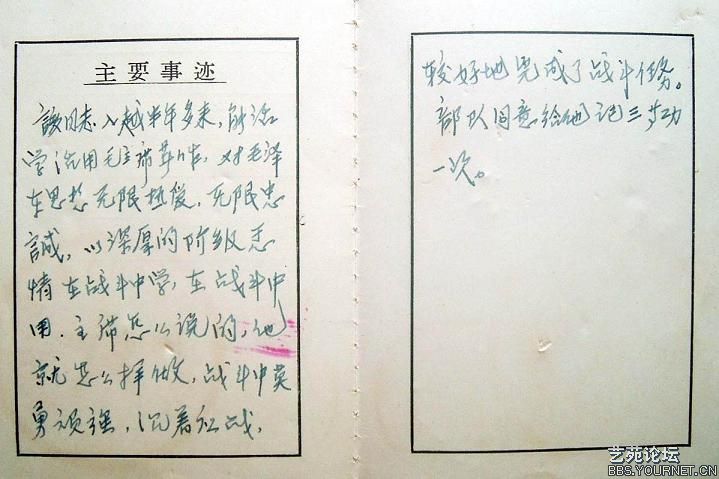 主要事迹
该同志入越半年多来，能活
学活用毛主席著作，对毛泽
东思想无限热爱，无限忠
誠，以深厚的阶级感
情在战斗中学，在战斗中
用．主席怎么说的，他
就怎么样做，战斗中英
勇顽强，沉着应战，
较好地完成了战斗任务。
部队同意给他记三等功
一次。
艺苑论坛
BBS.YOURNET.CN